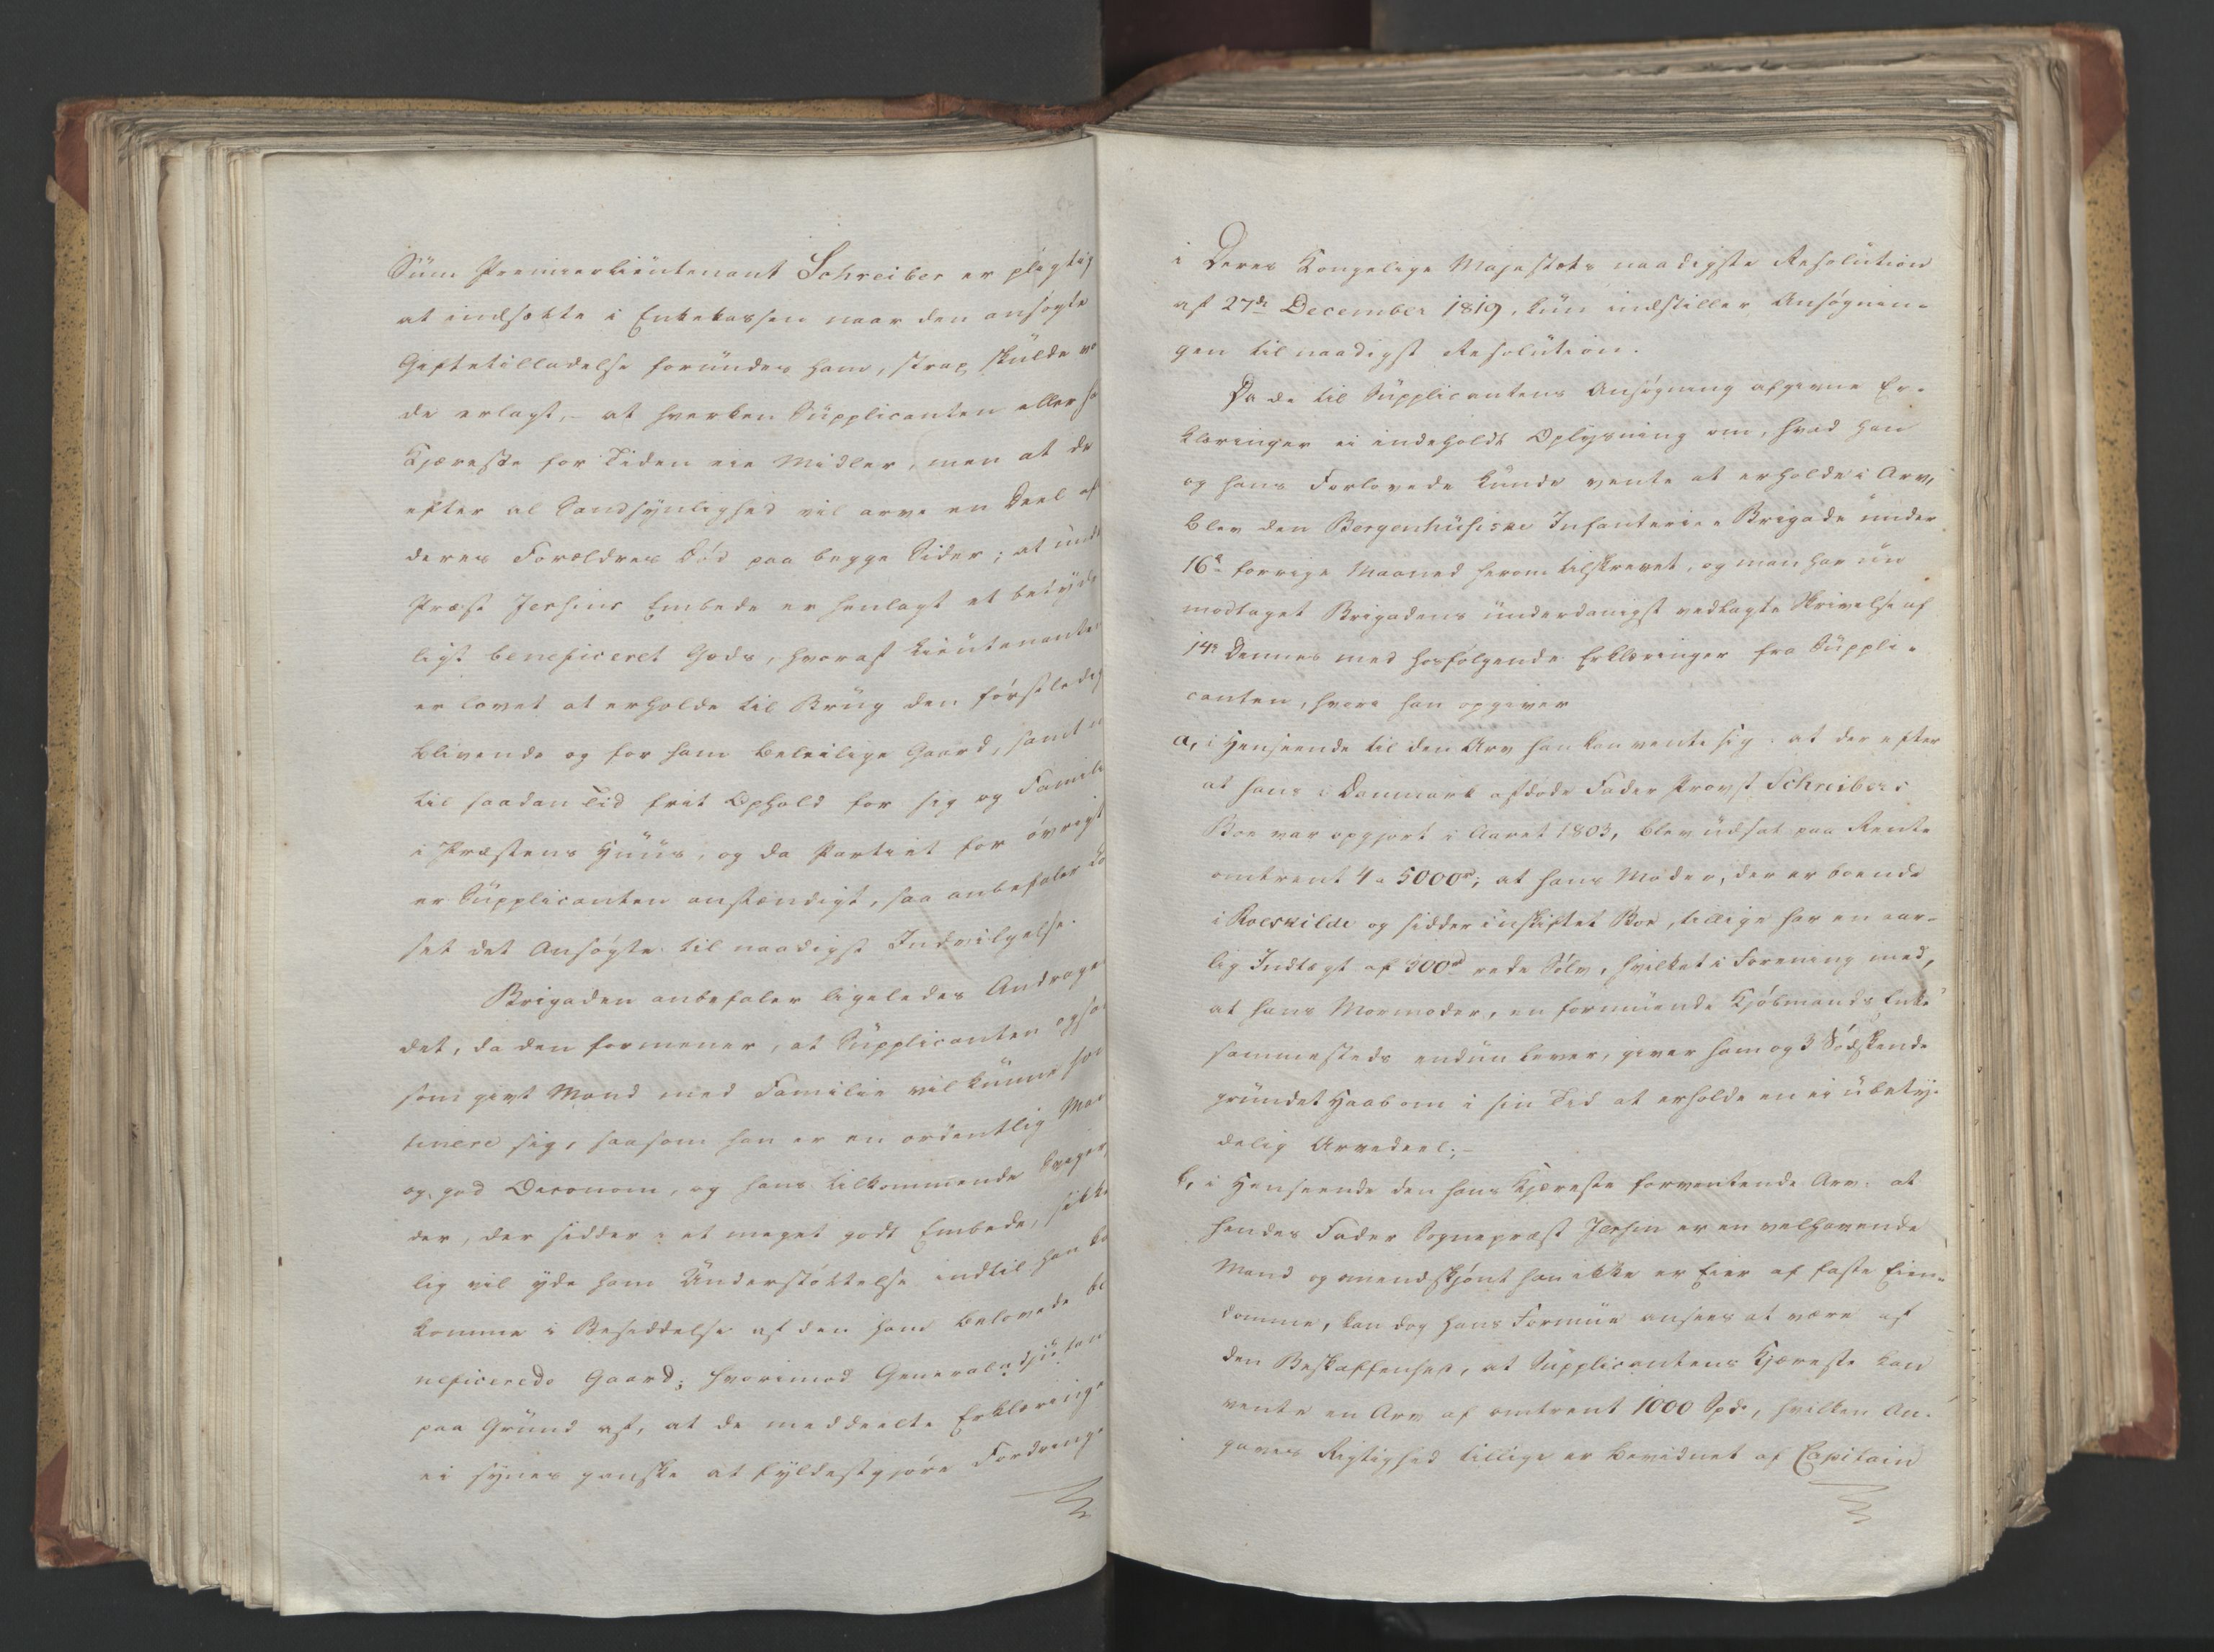 Süm Premierlieutenant Schreiber er pligtig
at indsætte i Enkekassen naar den ansøgte
Giftetilladelse forundes ham, strax skulde væ
de erlagt, - at hverken Supplicanten eller h
Kjæreste for Tiden eie Midler, men at de
efter al Sandsynlighed vil arve en Deel af
deres Forældres Død paa begge Sider; at und
Præst Jersins Embede er henlagt et betyde
ligt beneficeret Gods, hvoraf Lieutenanten
er lovet at erholde til Brug den førstledig
blivende og for ham beleilige Gaard, samt
til saadan Tid frit Ophold for sig og Famili
i Præstens Huus, og da Partiet for øvrigt
er Supplicanten anstændigt, saa anbefaler Co
set det Ansøgte til naadigst Indvilgelse.
Brigaden anbefaler ligeledes Andrage
det, da den formener, at Supplicanten ogsaa
som givt Mand med Familie vil kunne sou
tinere sig, saasom han er en ordentlig Man
og god Oeconom, og hans tilkommende Sviger
der, der sidder i et meget godt Embede, sikke
lig vil yde ham Understøttelse indtil han ka
komme i Besiddelse af den ham belovede be
neficerede Gaard; hvorimod Generaladjutan
paa Grund af, at de meddeelte Erklæringe
ei synes ganske at fyldestgjøre Fordringe
i Deres Kongelige Majestæts naadigste Resolution
af 27de December 1819, kun indstiller Ansøgnin-
gen til naadigst Resolution.
Da de til Supplicantens Ansøgning afgivne Er-
klæringer ei indeholdt Oplysning om, hvad han
og hans Forlovede kunde vente at erholde i Arv,
blev den Bergenhusiske Infanterie Brigade under
16de forrige Maaned herom tilskrevet, og man har nu
modtaget Brigadens underdanigst vedlagte Skrivelse af
14de dennes med hosfølgende Erklæringer fra Suppli-
canten, hvori han opgiver
a, i Henseende til den Arv han kan vente sig: at der efter
at hans i Danmark afdøde Fader Provst Schreibers
Boe var opgjort i Aaret 1803, blev udsat paa Rente
omtrent 4 a 5000rd; at hans Moder, der er boende
i Roeskilde og sidder i uskiftet Boe, tillige har en aar-
lig Indtægt af 300rd rede Sølv, hvilket i Forening med,
at hans Mormoder, en formuende Kjøbmands Enke
sammesteds endnu lever, giver ham og 3 Sødskende
grundet Haab om i sin Tid at erholde en ei ubety-
delig Arvedeel; -
b, i Henseende den hans Kjæreste forventende Arv: at
hendes Fader Sognepræst Jersin er en velhavende
Mand og omendskjønt han ikke er Eier af faste Eien-
domme, kan dog hans Formue ansees at være af
den Beskaffenhed, at Supplicantens Kjæreste kan
vente en Arv af omtrent 1000 Spd, hvilken An-
givnes Rigtighed tillige er bevidnet af Capitain